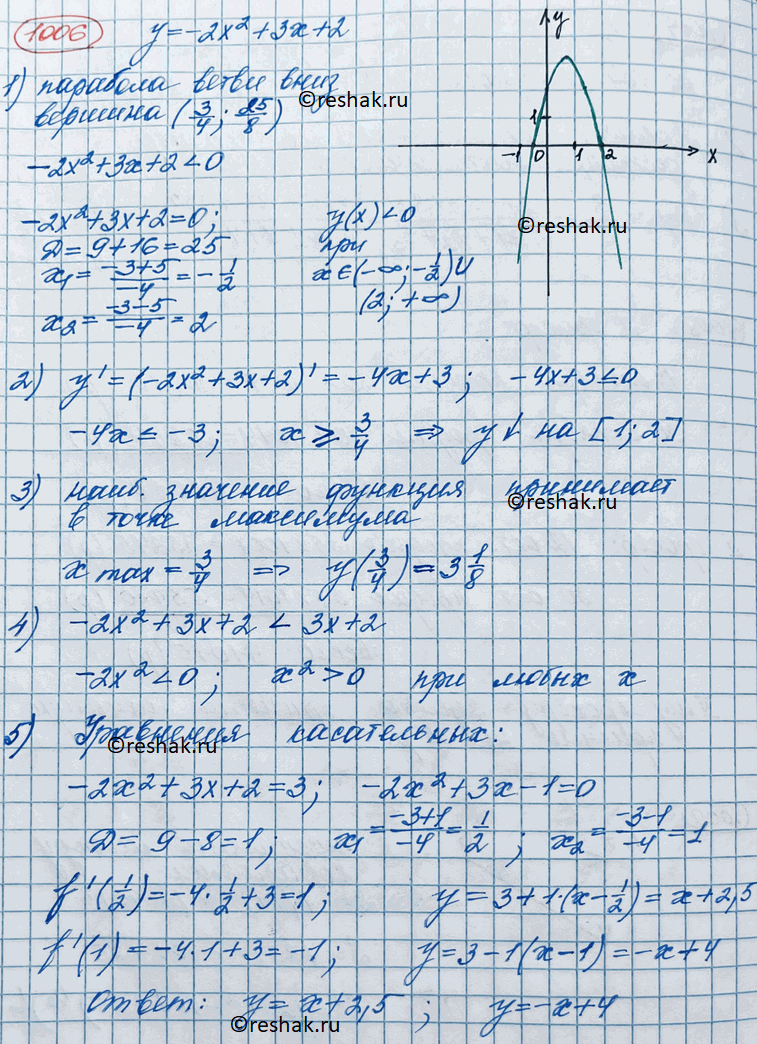 1006 y = -2x² + 3x + 2
1) парабола ветви вниз
вершина (3/4; 25/8)
-2x² + 3x + 2 < 0
-2x² + 3x + 2 = 0; y(x) < 0
D = 9 + 16 = 25 при
x₁ = (-3+5)/-4 = -1/2 x ∈ (-∞; -1/2) ∪
x₂ = (-3-5)/-4 = 2 (2; +∞)
y
1
-1 0 1 2 x
©reshak.ru
©reshak.ru
2) y' = (-2x² + 3x + 2)' = -4x + 3; -4x + 3 ≤ 0
-4x ≤ -3; x ≥ 3/4 ⇒ y↓ на [1; 2]
3) наиб. значение функция принимает
в точке максимума
©reshak.ru
x max = 3/4 ⇒ y(3/4) = 3 1/8
4) -2x² + 3x + 2 < 3x + 2
-2x² < 0; x² > 0 при любых x
5) Уравнения касательных:
©reshak.ru
-2x² + 3x + 2 = 3; -2x² + 3x - 1 = 0
D = 9 - 8 = 1; x₁ = (-3+1)/-4 = 1/2; x₂ = (-3-1)/-4 = 1
f'(1/2) = -4 · 1/2 + 3 = 1; y = 3 + 1·(x - 1/2) = x + 2,5
f'(1) = -4·1 + 3 = -1; y = 3 - 1(x - 1) = -x + 4
Ответ: y = x + 2,5; y = -x + 4
©reshak.ru